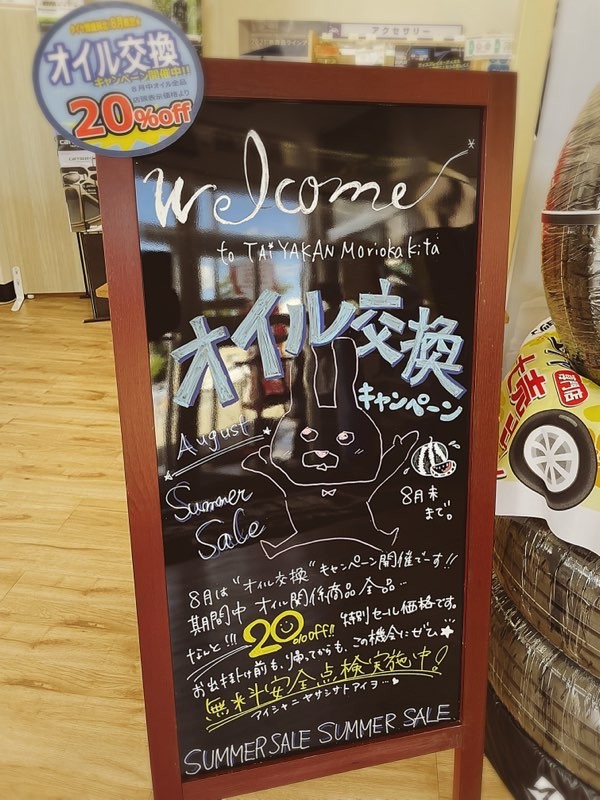 オイル交換
キャンペーン開催中!!
8月中オイル全品
店頭表示価格より
20%off
アクセサリー
Welcome
to TAIYAKAN Morioka Kita
オイル交換
キャンペーン
August
Summer
Sale
8月末
まで。
8月は"オイル交換"キャンペーン開催でーす!!
期間中 オイル関係商品 全品…
なんと!!! 20%off!! 特別セール価格です。
お出掛け前も、帰ってからも、この機会にぜひ★
無料安全点検実施中!
アイシャニ ヤサシサト アイヲ…
SUMMER SALE SUMMER SALE